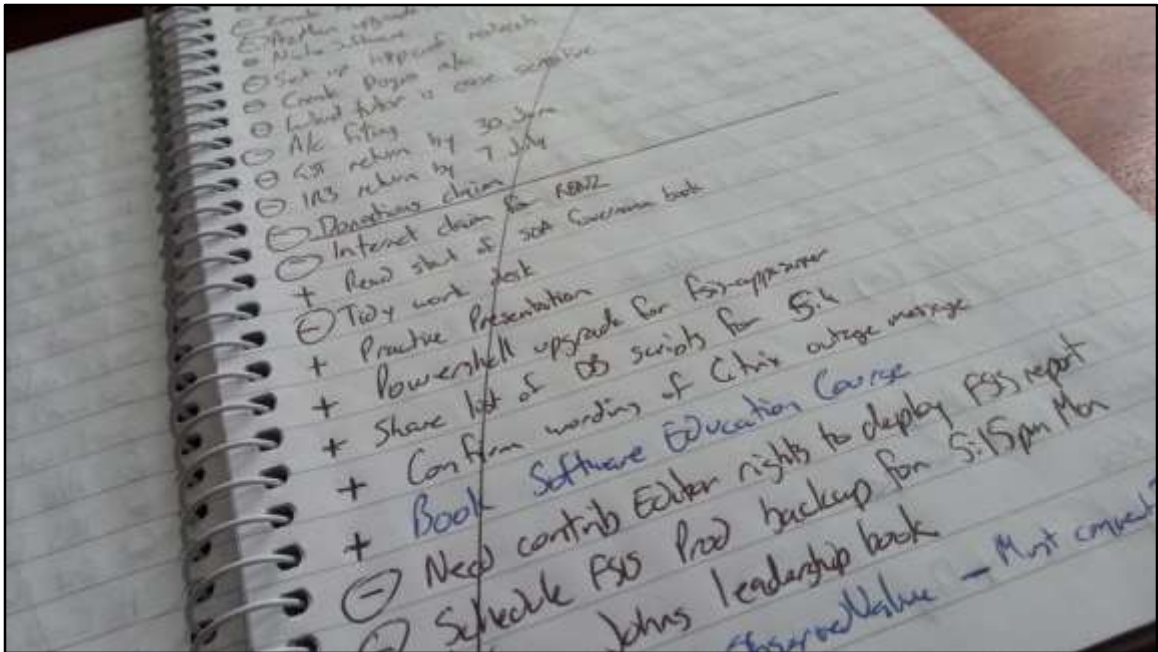 upgrade
Set up
Create
is case sensitive
A/C filing
GST return by 30 June
IR3 return by 7 July
Donations claim
Internet claim for RBNZ
+ Read start of SOA Governance book
Tidy work desk
+ Practice Presentation
+ Powershell upgrade for
+ Share list of DB scripts for 5.4
+ Confirm wording of Citrix outage message
+ Book Software Education Course
Need contrib Editor rights to deploy FSIS report
Schedule FSIS Prod backup for 5:15pm Mon
Johns leadership book
Value - Must convert